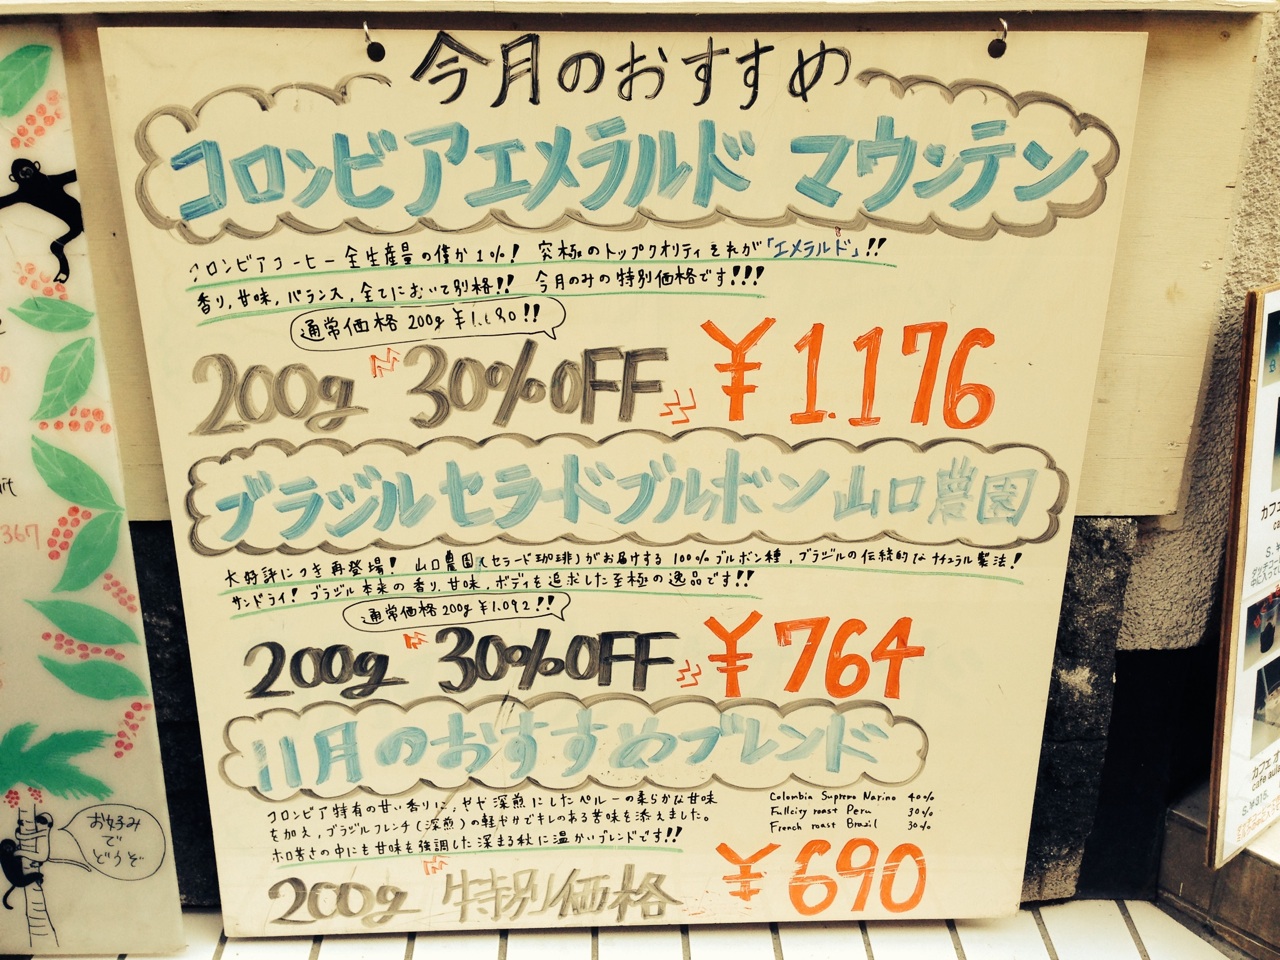 今月のおすすめ
コロンビアエメラルド マウンテン
コロンビアコーヒー全生産量の僅か1%! 究極のトップクオリティそれが「エメラルド」!!
香り,甘味,バランス,全てにおいて別格!! 今月のみの特別価格です!!!
通常価格 200g ¥1.680!!
200g 30%OFF ¥1.176
ブラジルセラードブルボン 山口農園
大好評につき再登場! 山口農園(セラード珈琲)がお届けする 100%ブルボン種,ブラジルの伝統的なナチュラル製法!
サンドライ! ブラジル本来の香り,甘味,ボディを追求した至極の逸品です!!
通常価格 200g ¥1.092!!
200g 30%OFF ¥764
11月のおすすめブレンド
コロンビア特有の甘い香りに,やや深煎にしたペルーの柔らかな甘味
を加え,ブラジルフレンチ(深煎)の軽やかでキレのある苦味を添えました。
ホロ苦さの中にも甘味を強調した深まる秋に温かいブレンドです!!
Colombia Supremo Narino 40%
Fullcity roast Peru 30%
French roast Brazil 30%
200g 特別価格 ¥690
367
お好み
で
どうぞ